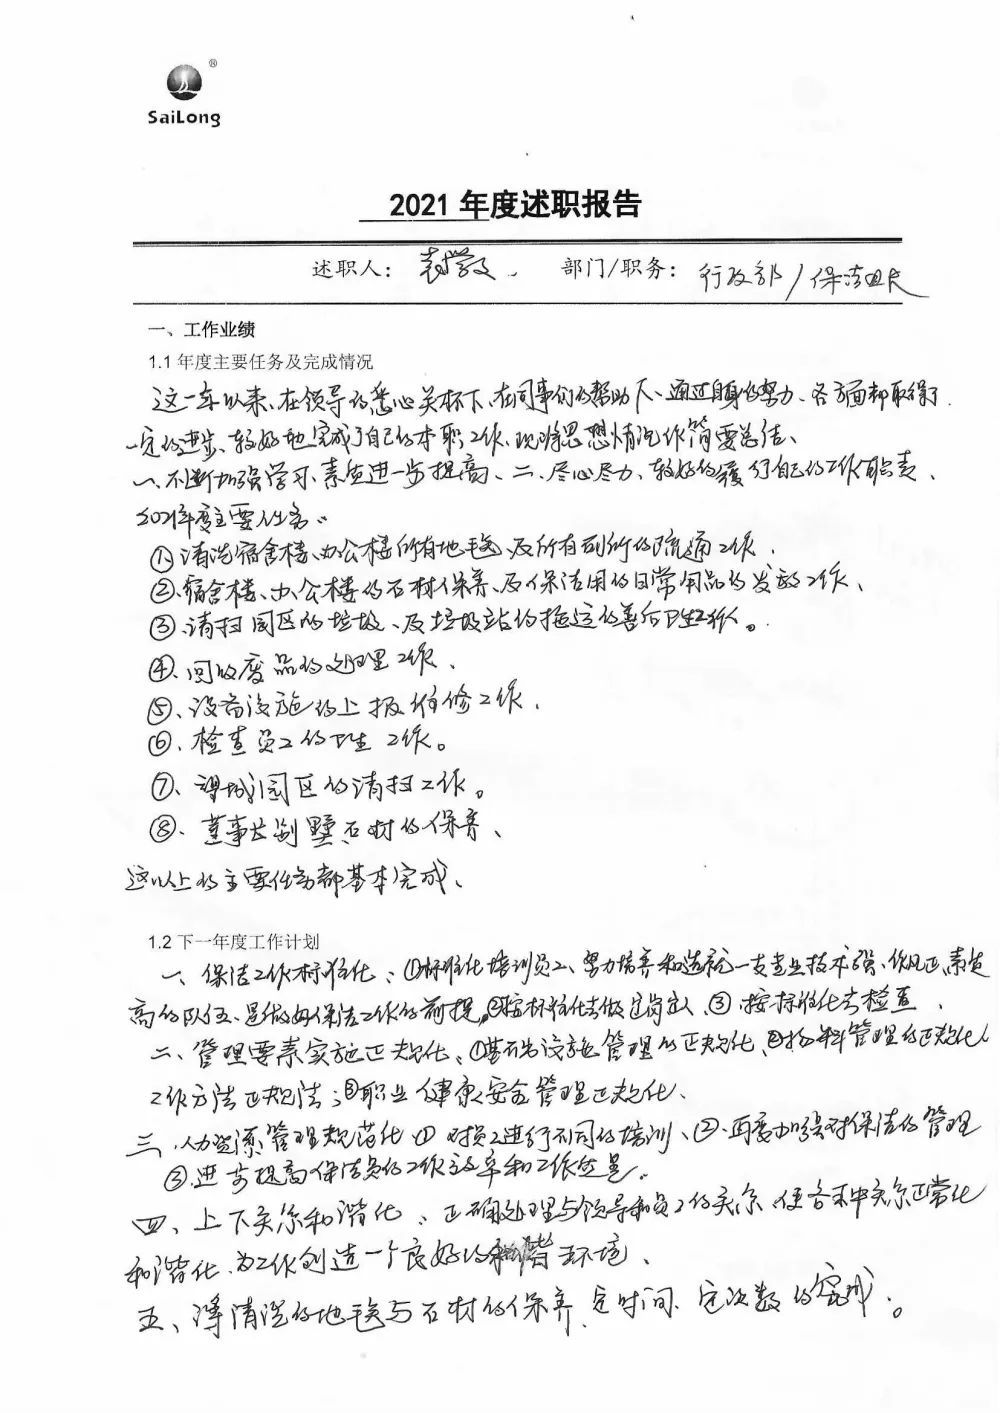 ®
SaiLong
2021 年度述职报告
述职人：袁学文、 部门/职务： 行政部/保洁班长
一、工作业绩
1.1 年度主要任务及完成情况
这一年以来、在领导的悉心关怀下、在同事们的帮助下、通过自身的努力、各方面都取得了
一定的进步、较好地完成了自己的本职工作、现将思想情况作简要总结、
一、不断加强学习、素质进一步提高、二、尽心尽力、较好的履行自己的工作职责、
2021年度主要任务：
①、清洗宿舍楼、办公楼所有地毯、及所有厕所的疏通工作、
②、宿舍楼、办公楼的石材保养、及保洁用的日常用品的发放工作、
③、清扫园区的垃圾、及垃圾站的拖运的善后卫生工作。
④、回收废品的处理工作、
⑤、设备设施的上报维修工作、
⑥、检查员工的卫生工作。
⑦、望城园区的清扫工作。
⑧、董事长别墅石材的保养、
这以上的主要任务都基本完成、
1.2 下一年度工作计划
一、保洁工作标准化、①标准化培训员工、努力培养和造就一支专业技术强、作风正、素质
高的队伍、是做好保洁工作的前提、②按标准化去做定岗定人、③按标准化去检查、
二、管理要素实施正规化、①基础设施管理的正规化、②物料管理的正规化
工作方法正规法；③职业健康安全管理正规化、
三、人力资源管理规范化 ① 对员工进行不同的培训、②、再度加强对保洁的管理
③、进步提高保洁员的工作效率和工作质量、
四、上下关系和谐化、正确处理与领导和员工的关系、使各种关系正常化
和谐化、为工作创造一个良好的和谐环境、
五、清洗的地毯与石材的保养、定时间、定次数的完成。